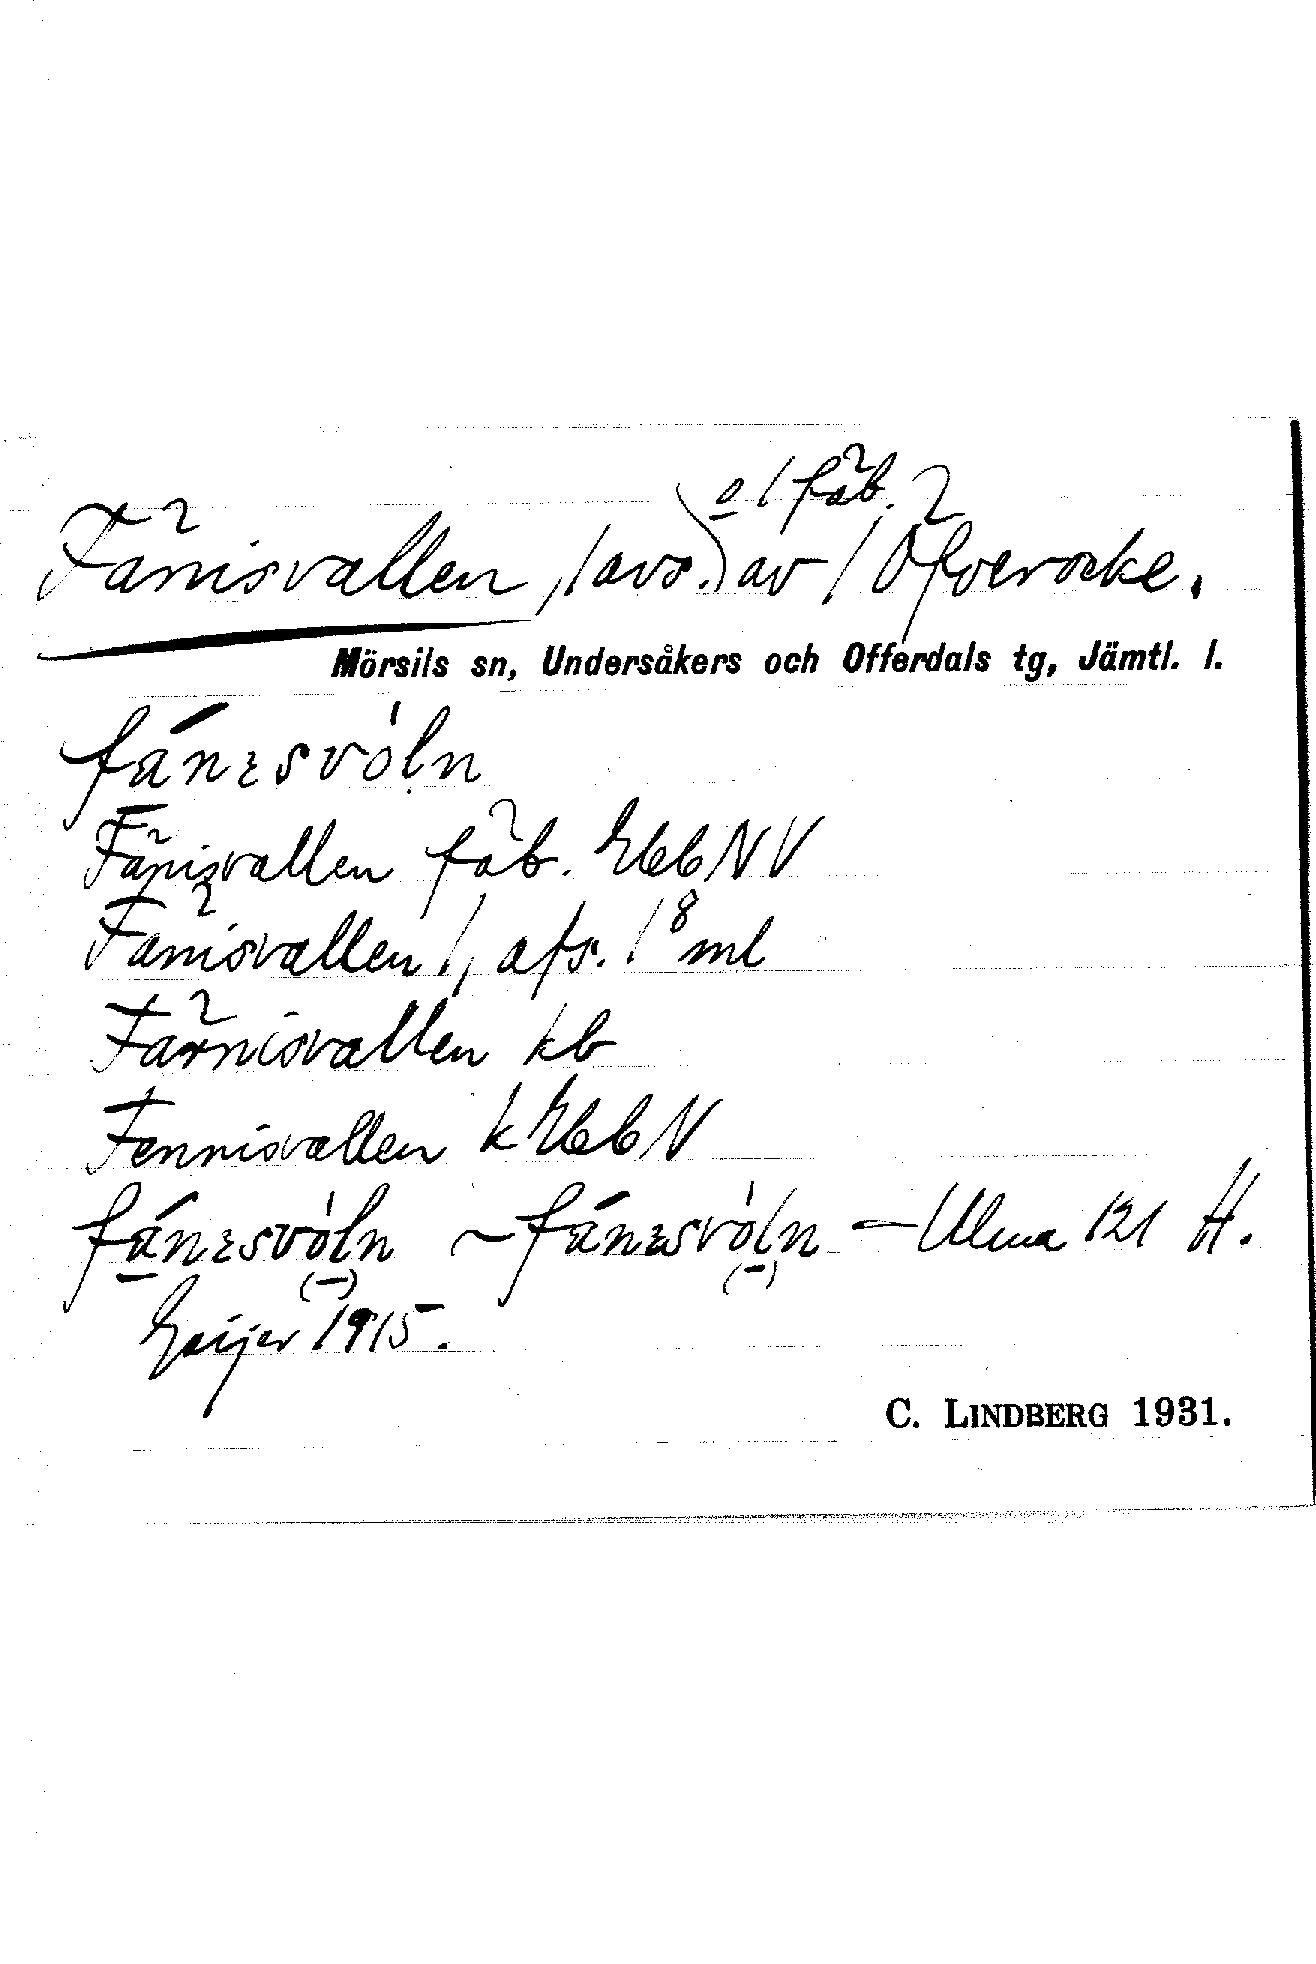 o 1 fäb.
Fänisvallen, 1 avs. av 1 Öfverocke.
Mörsils sn, Undersåkers och Offerdals tg, Jämtl. l.
fánɛsvòln
Fänisvallen fäb. NV
Fänisvallen 1, afs. 1⁸ ml
Färnisvallen kb
Fennisvallen k N
fánɛsvòln ~ fánɛsvòln — Ulma 121 H.
(–) (–)
Geijer 1915.
C. LINDBERG 1931.